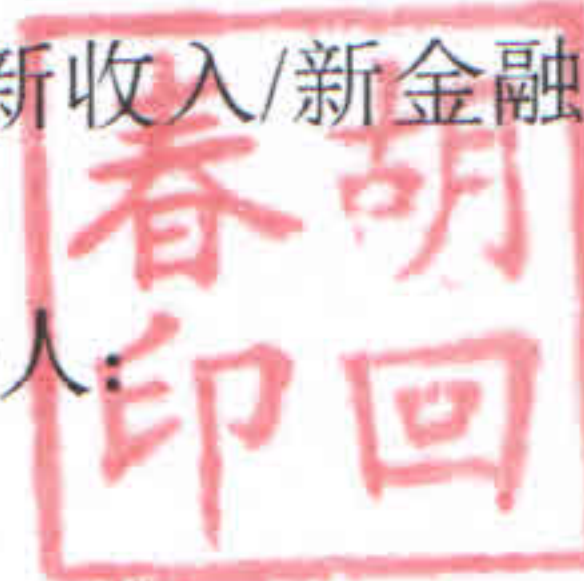 新收入/新金融
人:
胡回
春印